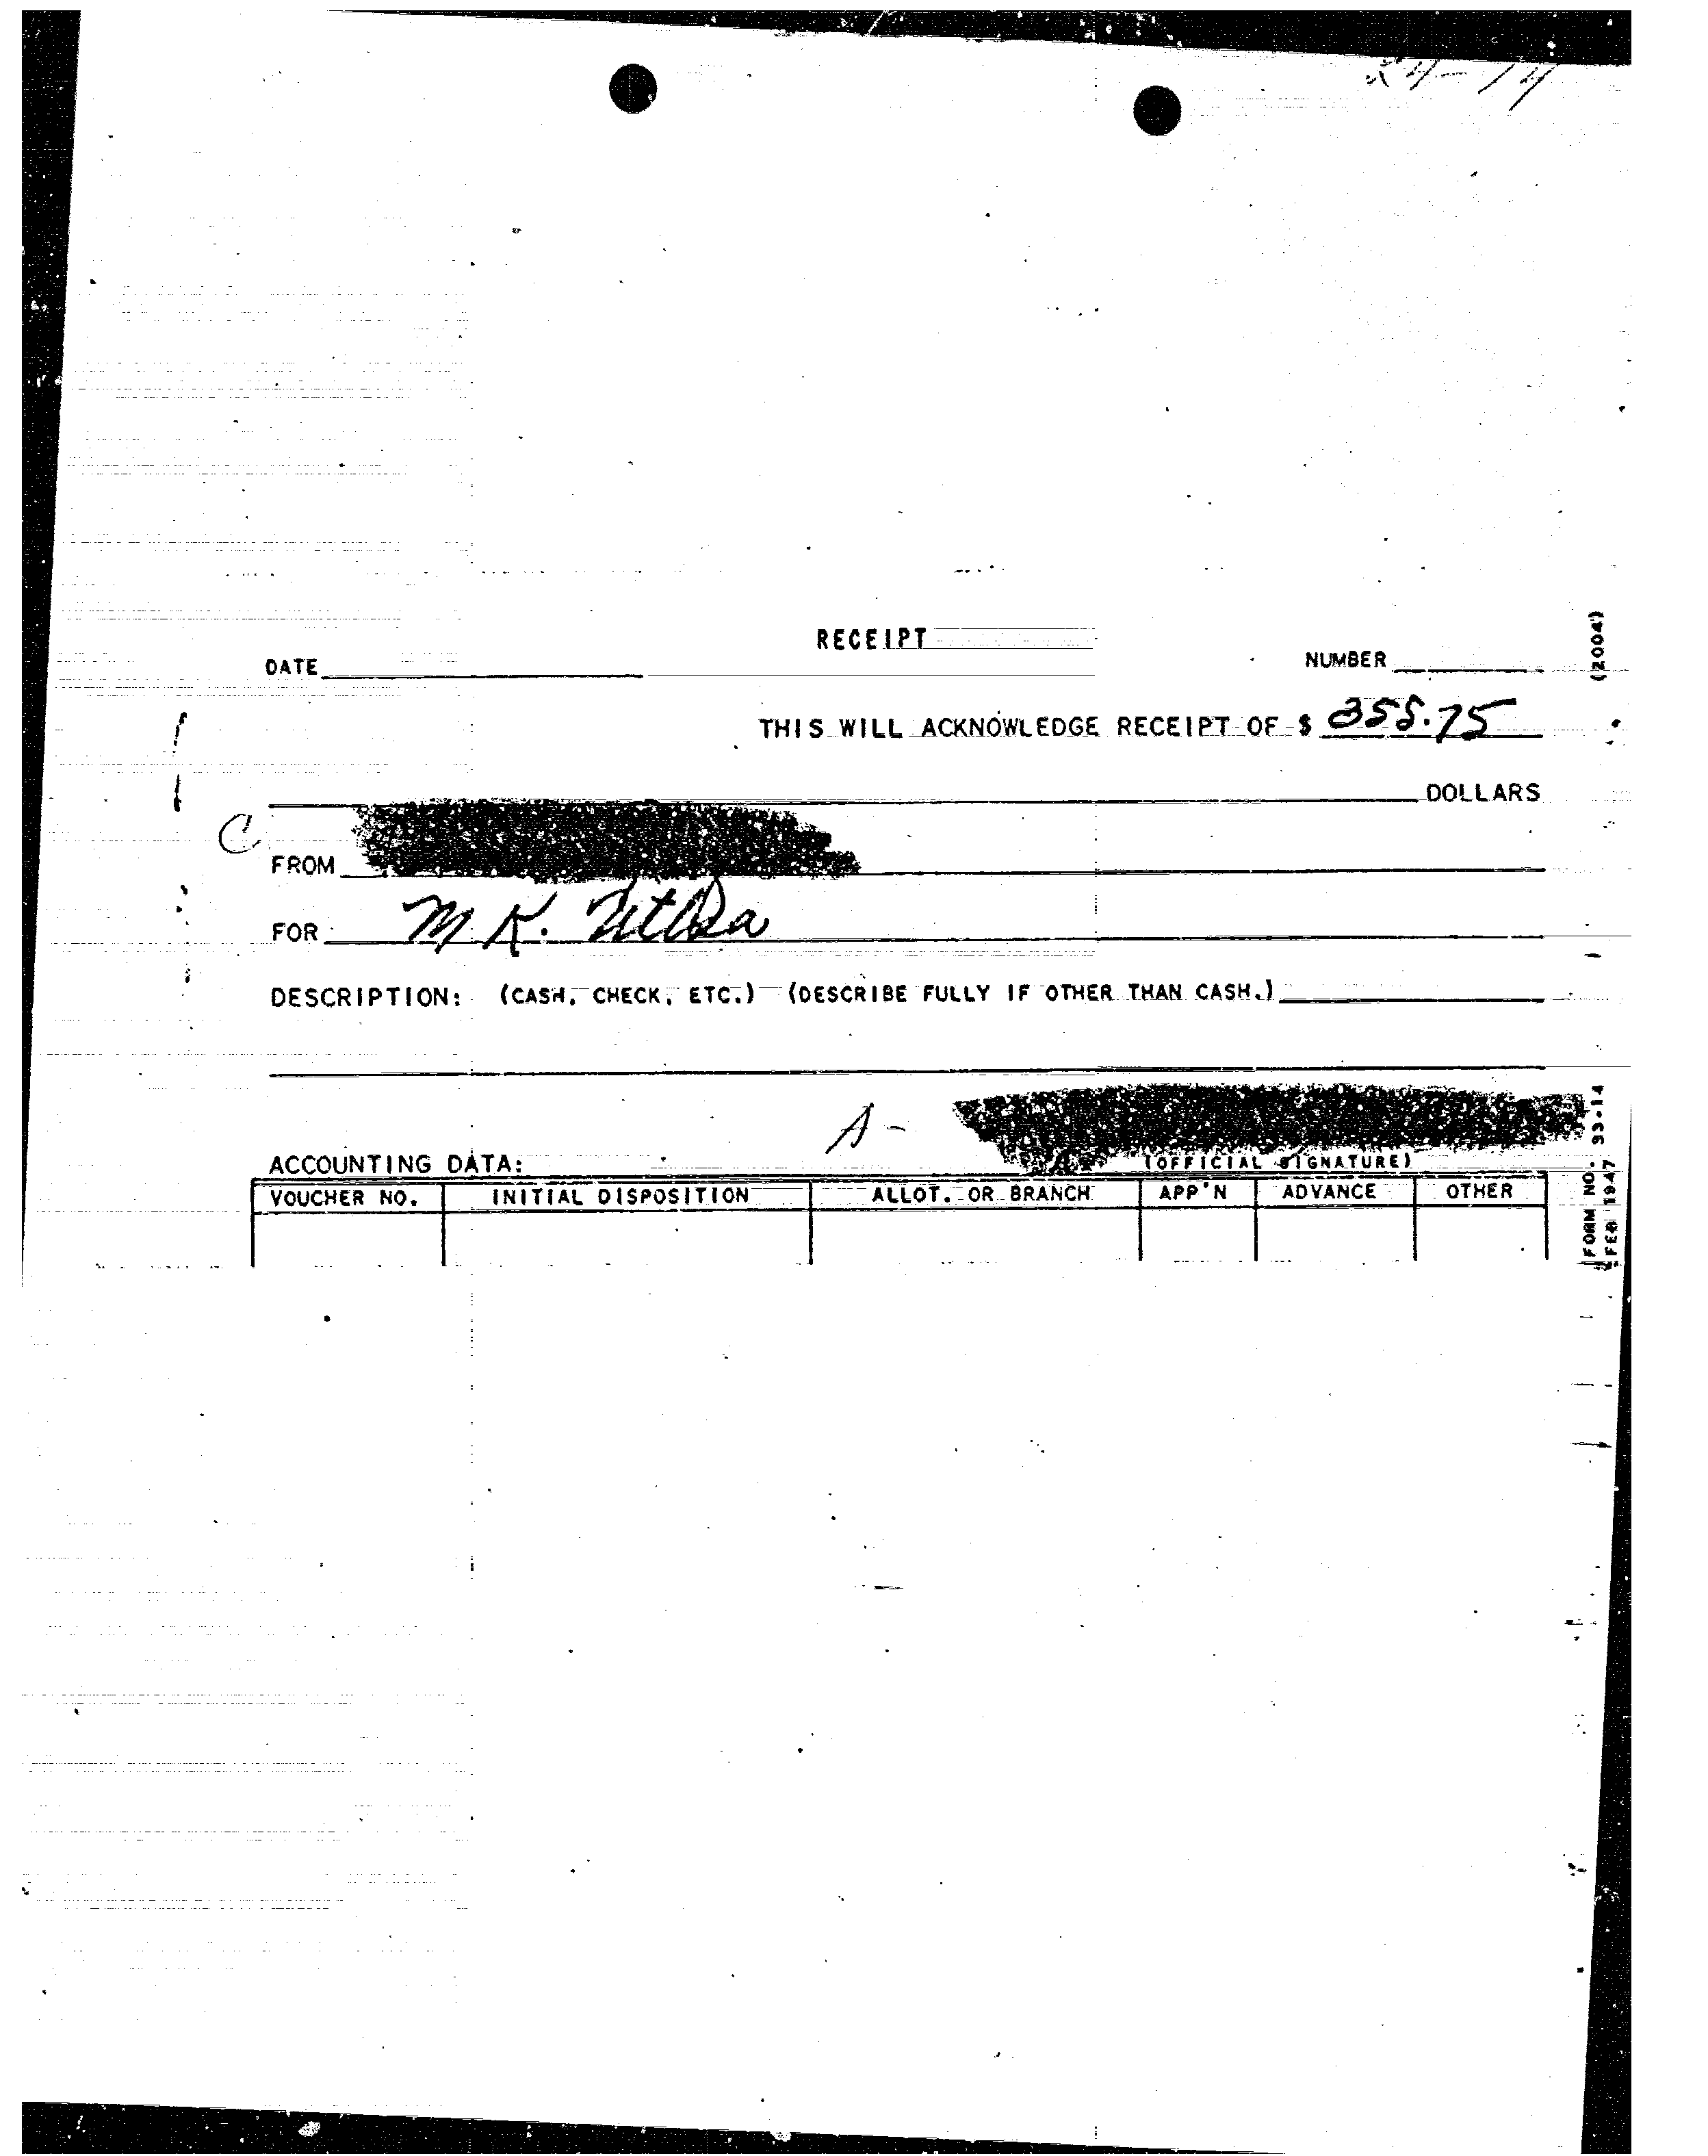 24-14
RECEIPT
DATE
NUMBER
(2004)
THIS WILL ACKNOWLEDGE RECEIPT OF $ 355.75
DOLLARS
C
FROM
FOR M K.
DESCRIPTION: (CASH, CHECK, ETC.) (DESCRIBE FULLY IF OTHER THAN CASH.)
A-
ACCOUNTING DATA:
(OFFICIAL SIGNATURE)
VOUCHER NO. INITIAL DISPOSITION ALLOT. OR BRANCH APP'N ADVANCE OTHER
FORM NO. 33-14
FEB 1947